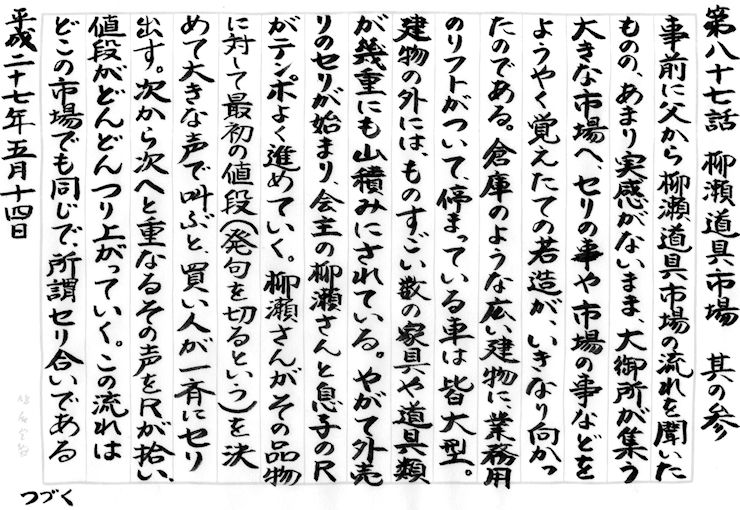 第八十七話　柳瀬道具市場　其の参
事前に父から柳瀬道具市場の流れを聞いた
ものの、あまり実感がないまま、大御所が集う
大きな市場へ、セリの事や市場の事などを
ようやく覚えたての若造が、いきなり向かっ
たのである。倉庫のような広い建物に業務用
のリフトがついて、停まっている車は皆大型。
建物の外には、ものすごい数の家具や道具類
が幾重にも山積みにされている。やがて外売
りのセリが始まり、会主の柳瀬さんと息子のR
がテンポよく進めていく。柳瀬さんがその品物
に対して最初の値段(発句を切るという)を決
めて大きな声で叫ぶと、買い人が一斉にセリ
出す。次から次へと重なるその声をRが拾い、
値段がどんどんつり上がっていく。この流れは
どこの市場でも同じで、所謂セリ合いである
平成二十七年五月十四日
つづく